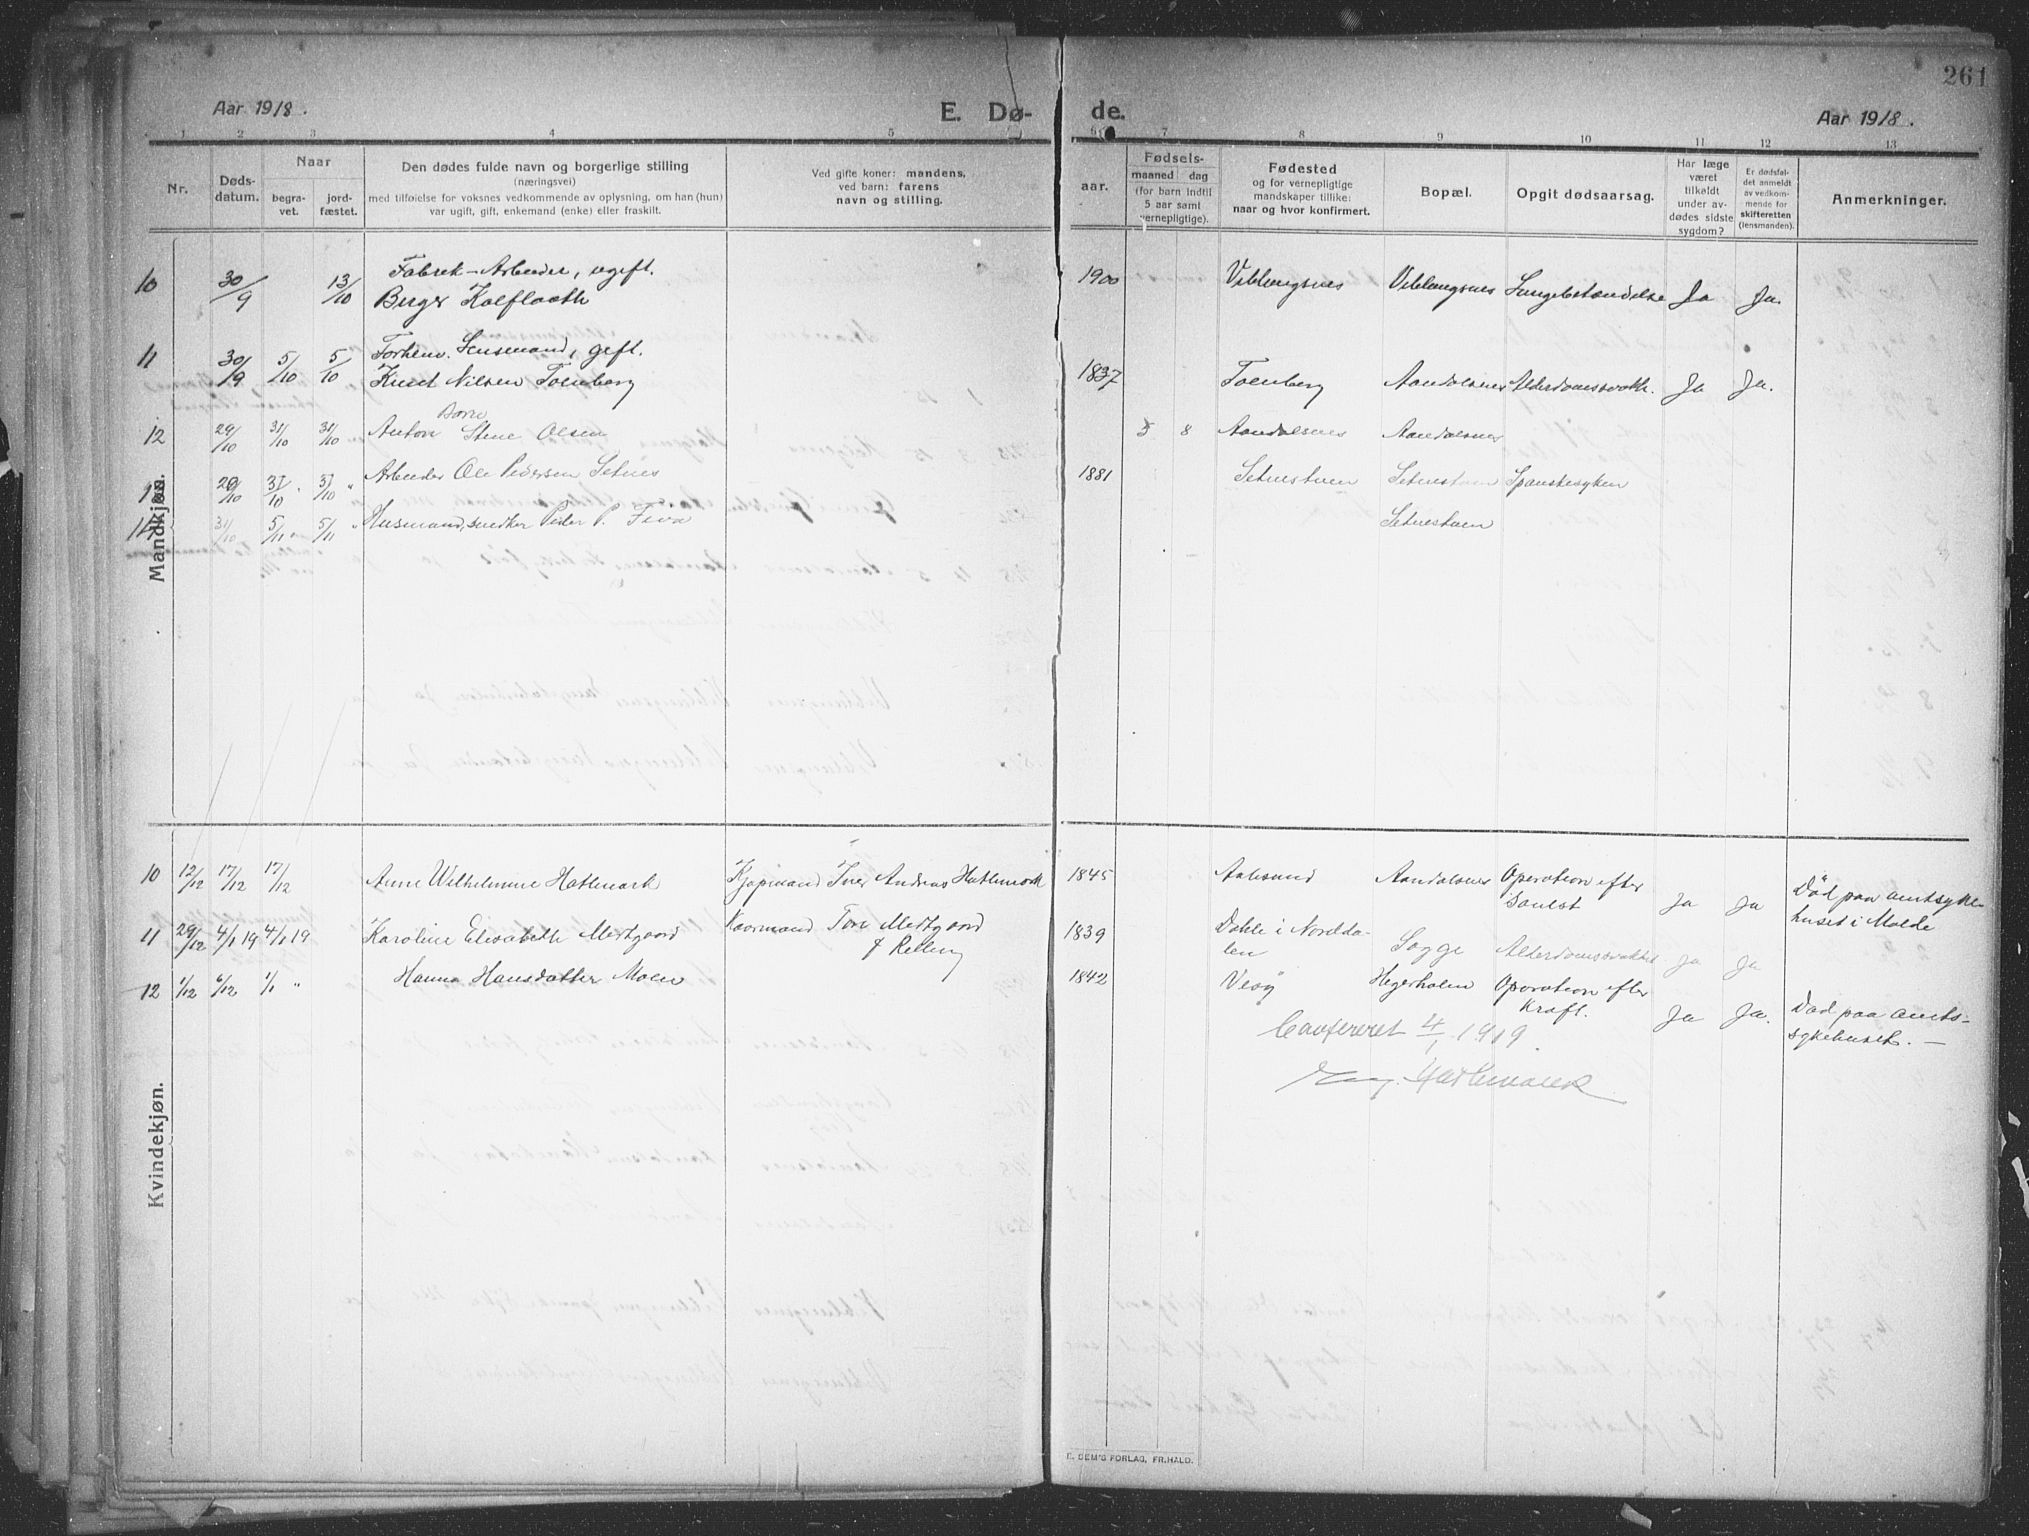 261
Aar 1918.
E. Dø-
de.
Aar 1918.
1 2 3 4 5 6 7 8 9 10 11 12 13
Nr.
Døds-
datum.
Naar
begra-
vet.
jord-
fæstet.
Den dødes fulde navn og borgerlige stilling
(næringsvei)
med tilføielse for voksnes vedkommende av oplysning, om han (hun)
var ugift, gift, enkemand (enke) eller fraskilt.
Ved gifte koner: mandens,
ved barn: farens
navn og stilling.
aar.
Fødsels-
maaned dag
(for barn indtil
5 aar samt
vernepligtige).
Fødested
og for vernepligtige
mandskaper tillike:
naar og hvor konfirmert.
Bopæl.
Opgit dødsaarsag.
Har læge
været
tilkaldt
under av-
dødes sidste
sygdom?
Er dødsfal-
det anmeldt
av vedkom-
mende for
skifteretten
(lensmanden).
Anmerkninger.
Mandkjøn.
10 30/9 13/10 Fabrik-Arbeider, ugift.
Birger Kalflaath 1900 Veblungsnes Veblungsnes Lungebetændelse Ja Ja.
11 30/9 5/10 5/10 Forhenv. Lensmand, gift.
Knut Nilsen Tomberg 1837 Tomberg Aandalsnes Alderdomssvakh. Ja Ja.
Barn
12 29/10 31/10 31/10 Anton Stene Olsen 5 8 Aandalsnes Aandalsnes
13 29/10 31/10 31/10 Arbeider Ole Pedersen Setnes 1881 Setnesmoen Setnesmoen Spanskesyken
14 31/10 5/11 5/11 Husmand, snedker Peder P. Fiva Setnesmoen
Kvindekjøn.
10 12/12 17/12 17/12 Anne Wilhelmine Hatlemark Kjøpmand Iver Andreas Hatlemark 1845 Aalesund Aandalsnes Operation efter
Ja Ja Død paa amtsyke-
huset i Molde
11 29/12 4/1 19 4/1 19 Karoline Elisabeth Mertgaard Kaarmand Tore Mertgaard
f Relling 1839 Dahle i Nordda-
len Sogge Alderdomssvakhet Ja Ja
12 1/12 6/12 1/1 " Hanna Hansdatter Moen 1842 Vesøy Hegerholem Operation efter
Kræft. Ja Ja. Død paa amts-
sykehuset. —
Confereret 4/1 1919.
Hatlemark
E. SEM'S FORLAG, FR.HALD.